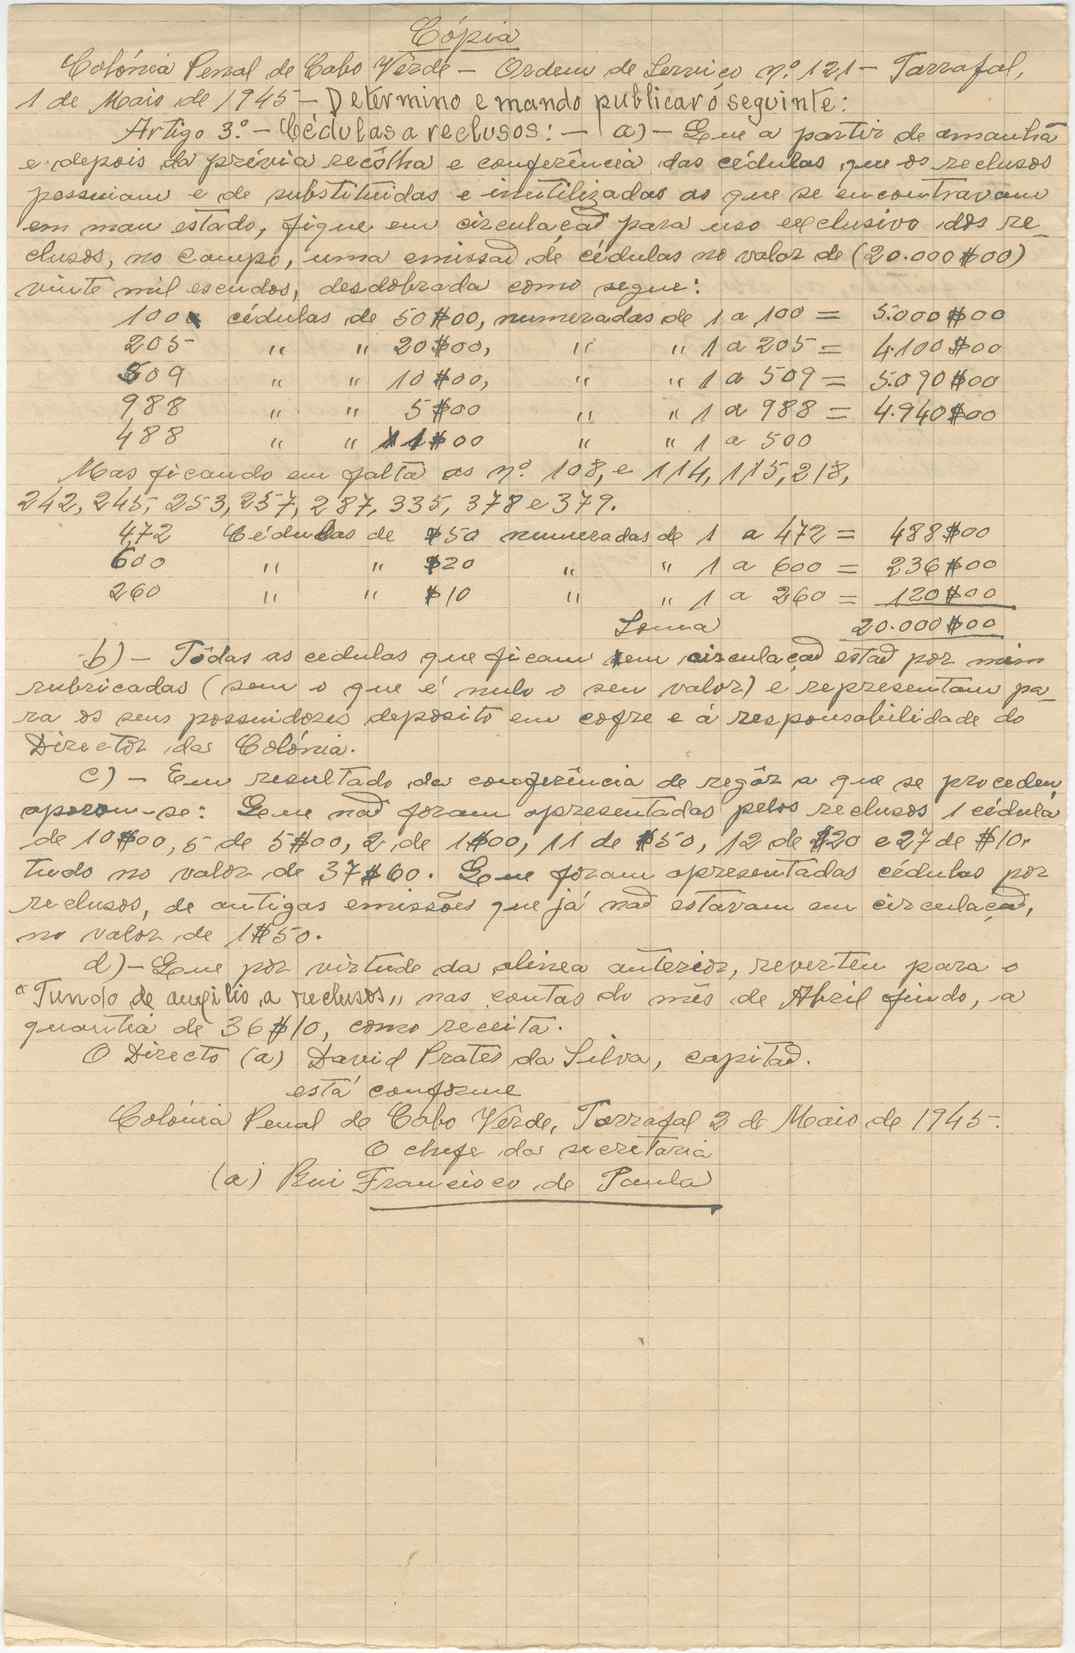 Cópia
Colónia Penal de Cabo Vêrde - Ordem de Serviço nº. 121 - Tarrafal,
1 de Maio de 1945 - Determino e mando publicar ó seguinte:
Artigo 3.º - Cédulas a reclusos: - a) - Que a partir de amanhã
e depois da prévia recôlha e conferência das cédulas que os reclusos
possuiam e de substituidas e inutilizadas as que se encontravam
em mau estado, fique em circulação para uso exclusivo dos re-
clusos, no campo, uma emissão de cédulas no valor de (20.000$00)
vinte mil escudos, desdobrada como segue:
100 cédulas de 50$00, numeradas de 1 a 100 = 5.000$00
205 " " 20$00, " " 1 a 205 = 4.100$00
509 " " 10$00, " " 1 a 509 = 5.090$00
988 " " 5$00 " " 1 a 988 = 4.940$00
488 " " 1$00 " " 1 a 500
Mas ficando em falta os nº. 108, e 114, 115, 218,
242, 245, 253, 257, 287, 335, 378 e 379.
472 Cédulas de $50 numeradas de 1 a 472 = 488$00
600 " " $20 " " 1 a 600 = 236$00
260 " " $10 " " 1 a 260 = 120$00
Soma 20.000$00
b) - Tôdas as cedulas que ficam em circulação estão por mim
rubricadas (sem o que é nulo o seu valor) e representam pa-
ra os seus possuidores deposito em cofre e á responsabilidade do
Director da Colónia.
c) - Em resultado da conferência de regôr a que se procedeu,
apurou-se: Que não foram apresentadas pelos reclusos 1 cédula
de 10$00, 5 de 5$00, 2 de 1$00, 11 de $50, 12 de $20 e 27 de $10.
tudo no valor de 37$60. Que foram apresentadas cédulas por
reclusos, de antigas emissões que já não estavam em circulação,
no valor de 1$50.
d) - Que por virtude da alinea anterior, reverteu para o
"Fundo de auxilio a reclusos" nas contas do mês de Abril findo, a
quantia de 36$10, como receita.
O Directo (a) David Prates da Silva, capitão.
está conforme
Colónia Penal de Cabo Vêrde, Tarrafal 2 de Maio de 1945.
O chefe da secretaria
(a) Rui Francisco de Paula